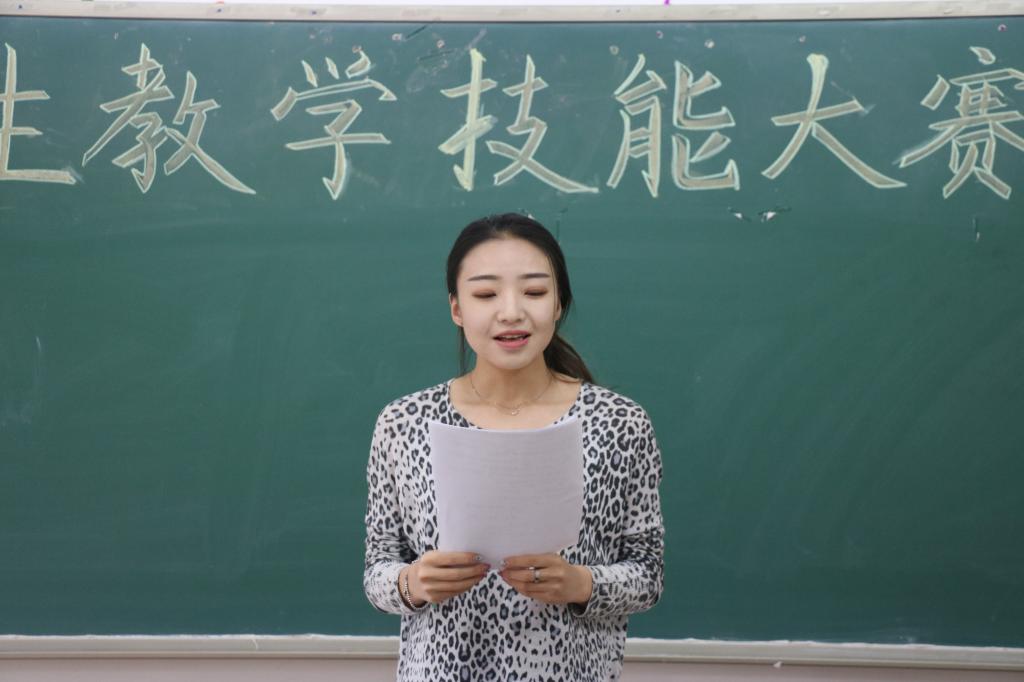 教学技能大赛